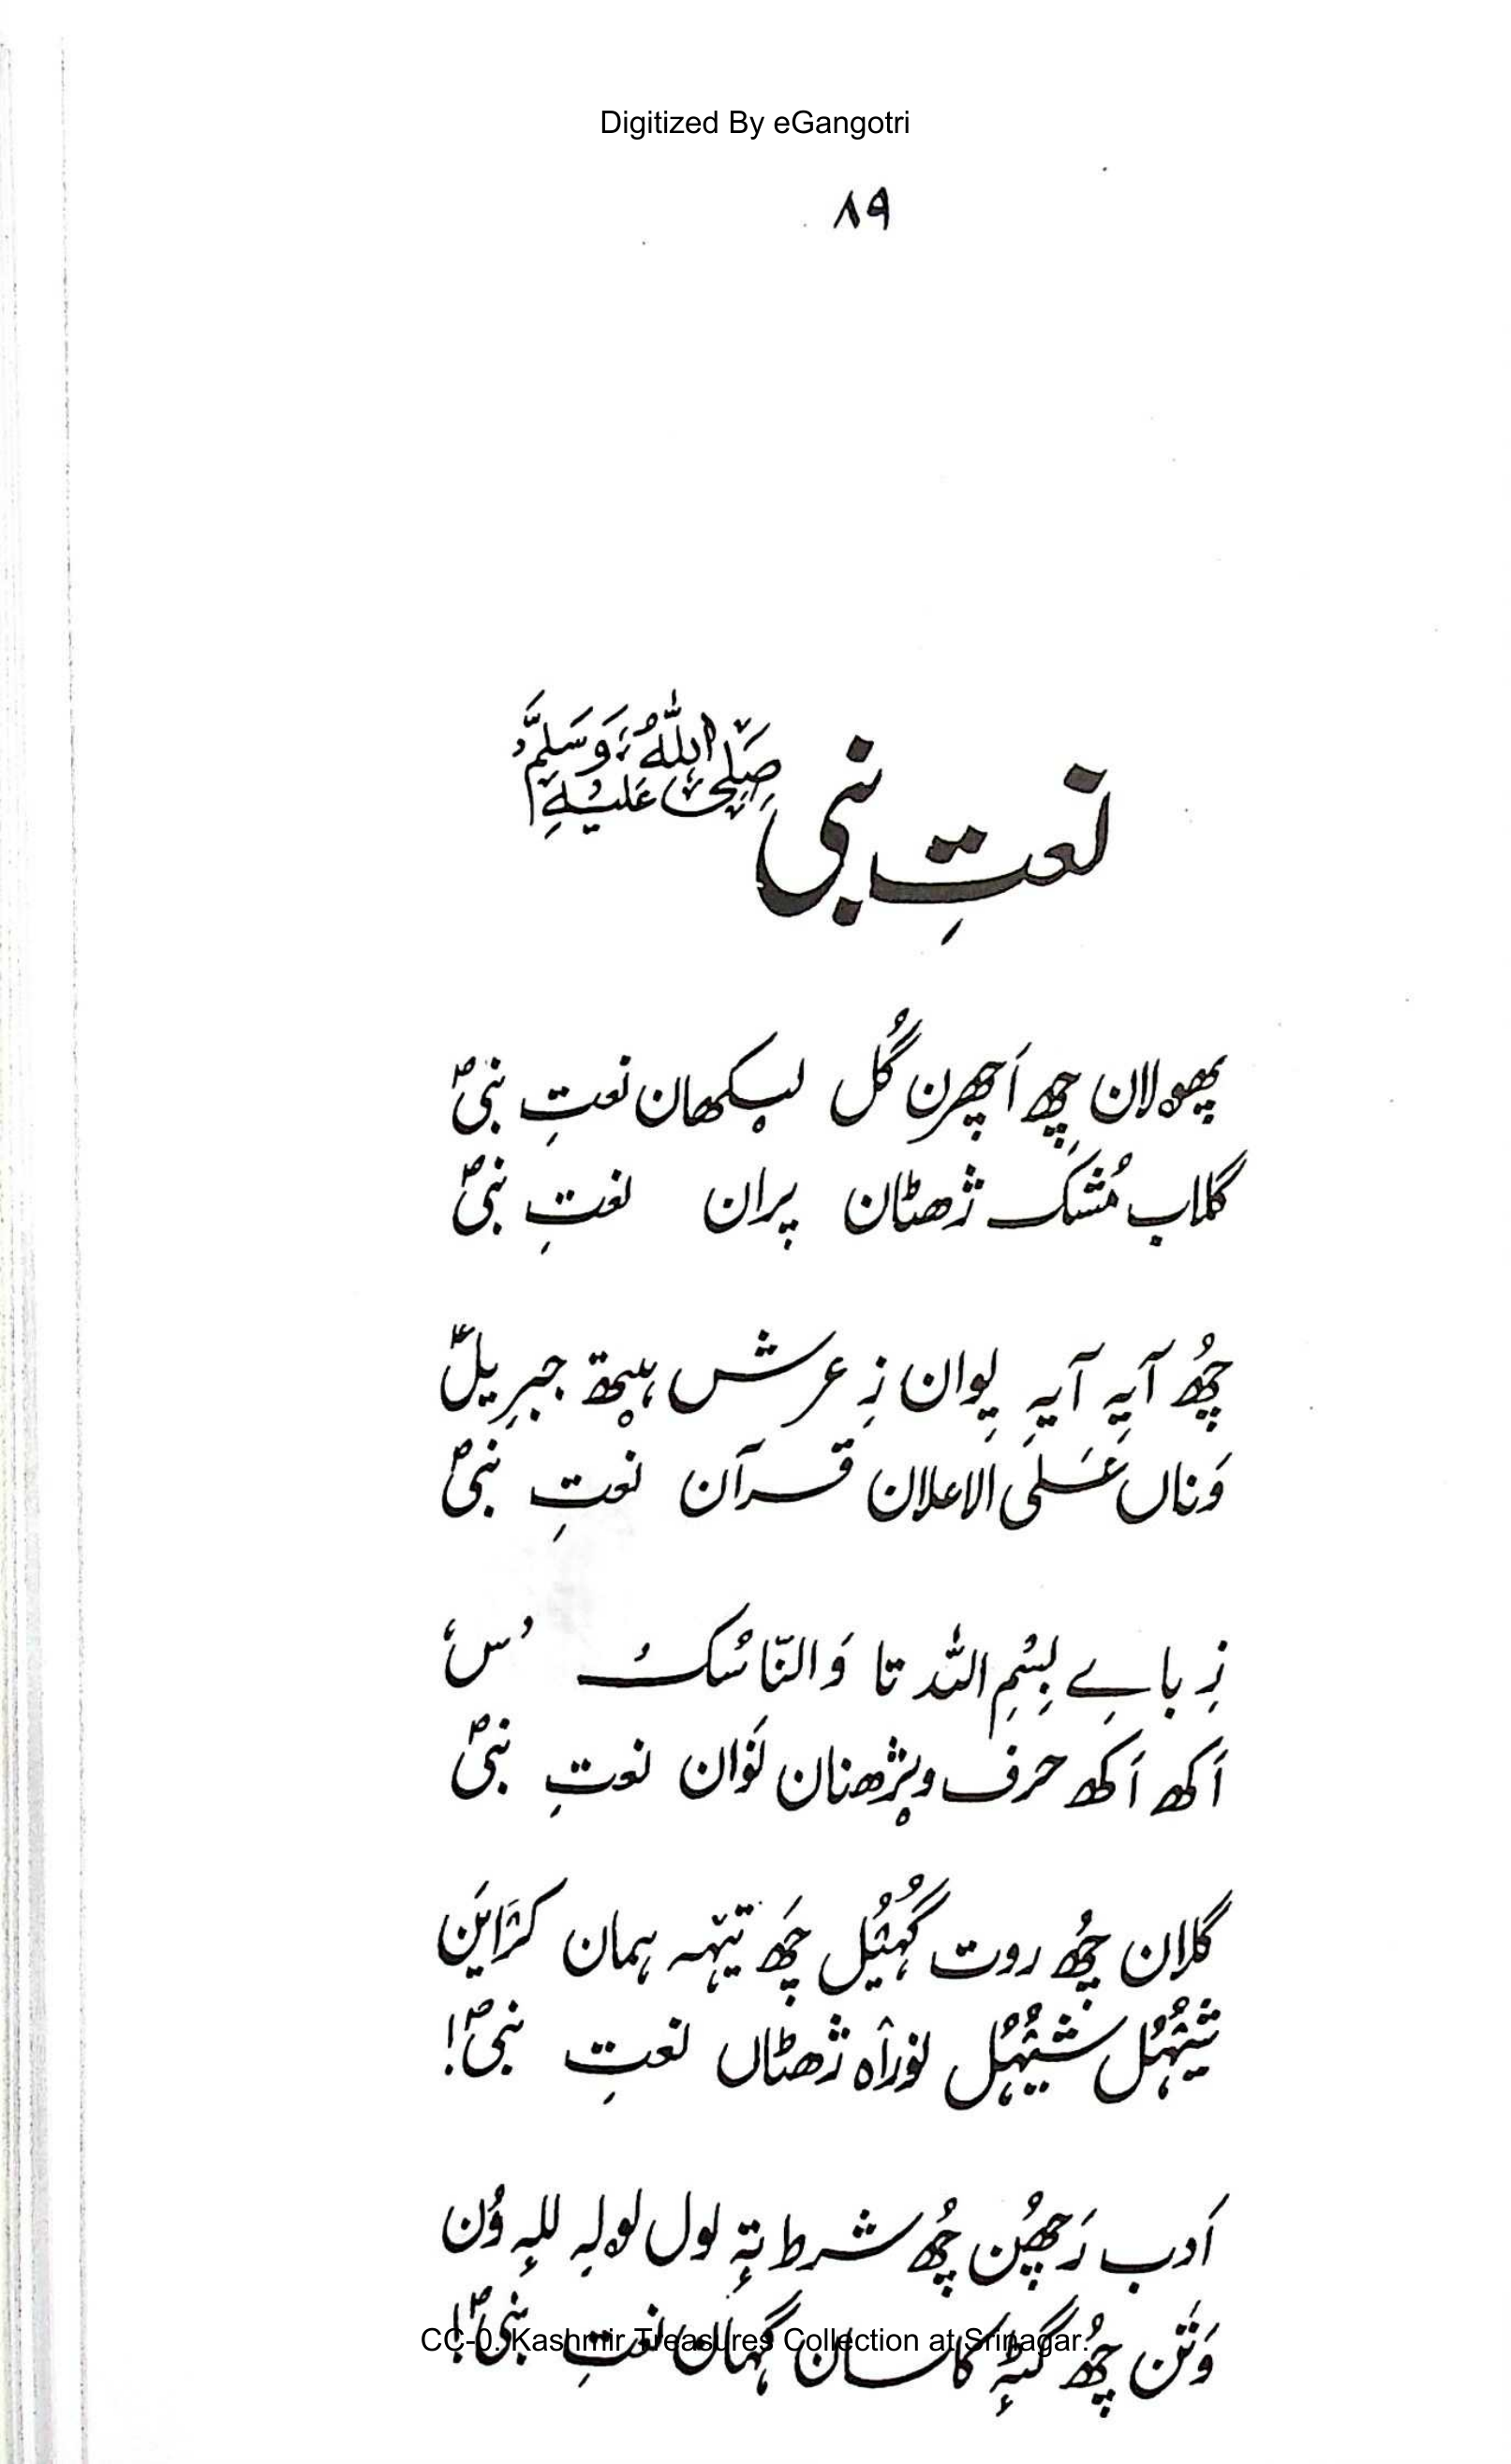 Digitized By eGangotri
۸۹
نعتِ نبی صَلَّی اللہُ عَلَیْہِ وَسَلَّم
پھولان چھِ اَچھرن گُل لیٚکھان نعتِ نبیؐ
گلاب مُشک ژھٹان پران نعتِ نبیؐ
چھُ آیہِ آیہِ یِوان زِ عرش ہیٚتھ جبرِیلؑ
وَناں عَلی الاعلان قرآن نعتِ نبیؐ
زِ باے بِسْمِ اللہ تا وَالنّاسُک
اَکھ اَکھ حرف ویٚژھنان نَوان نعتِ نبیؐ
گلان چھُ روت گُہیُل چھَ تیٚہہ ہمان کرٛایَن
شیُہُل شیُہُل نوراہ ژھٹاں نعتِ نبیؐ!
اَدب رَچھُن چھُ شرط تہٕ لول لولہِ للہٕ وُن
وَتَن چھُ گٹہٕ کاسان گہان نعتِ نبیؐ!
CC-0. Kashmir Treasures Collection at Srinagar.